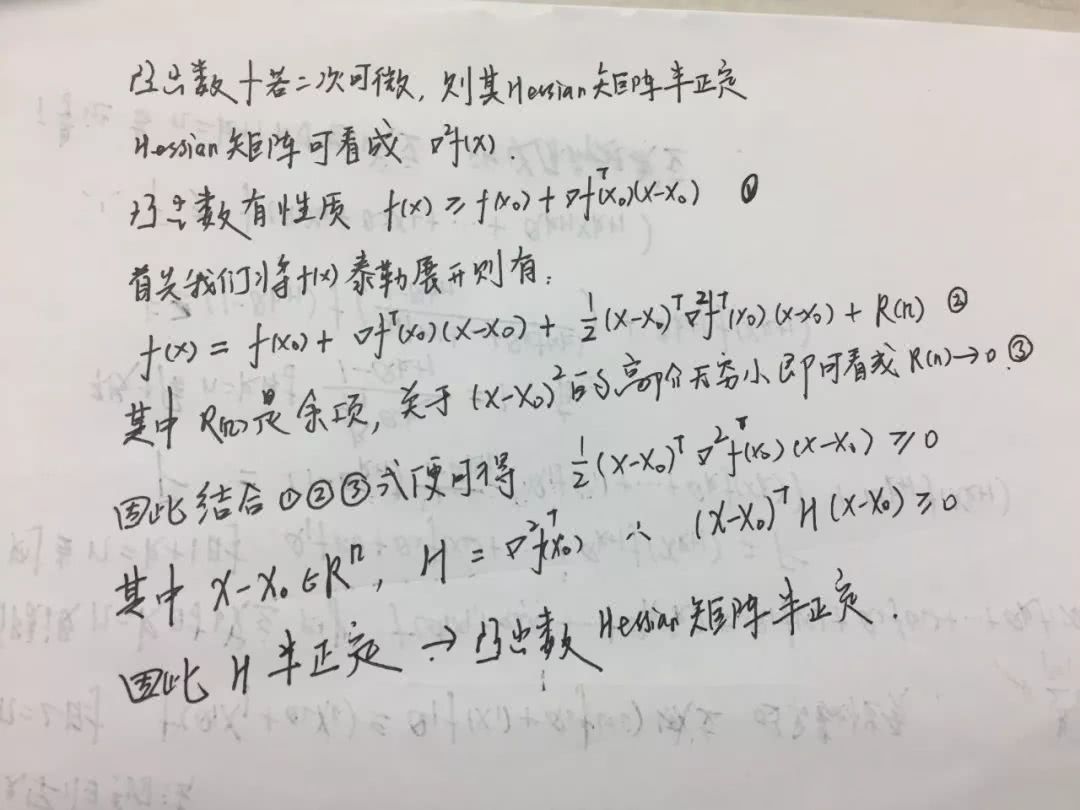 凸函数f若二次可微,则其Hessian矩阵半正定
Hessian矩阵可看成 ∇²f(x).
凸函数有性质 f(x) ≥ f(x₀) + ∇fᵀ(x₀)(x-x₀) ①
首先我们将f(x)泰勒展开则有:
f(x) = f(x₀) + ∇fᵀ(x₀)(x-x₀) + ½(x-x₀)ᵀ∇²fᵀ(x₀)(x-x₀) + R(n) ②
其中R(n)是余项,关于(x-x₀)²的高阶无穷小即可看成R(n)→0 ③
因此结合①②③式便可得 ½(x-x₀)ᵀ∇²fᵀ(x₀)(x-x₀) ≥ 0
其中 x-x₀∈Rⁿ, H = ∇²fᵀ(x₀) ∴ (x-x₀)ᵀH(x-x₀) ≥ 0
因此 H 半正定 → 凸函数Hessian矩阵半正定.